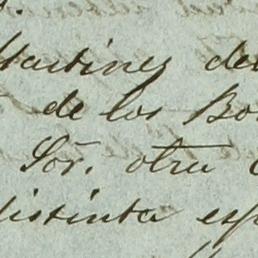 Martinez del
de los Bo
Sor. otra
distinta esp